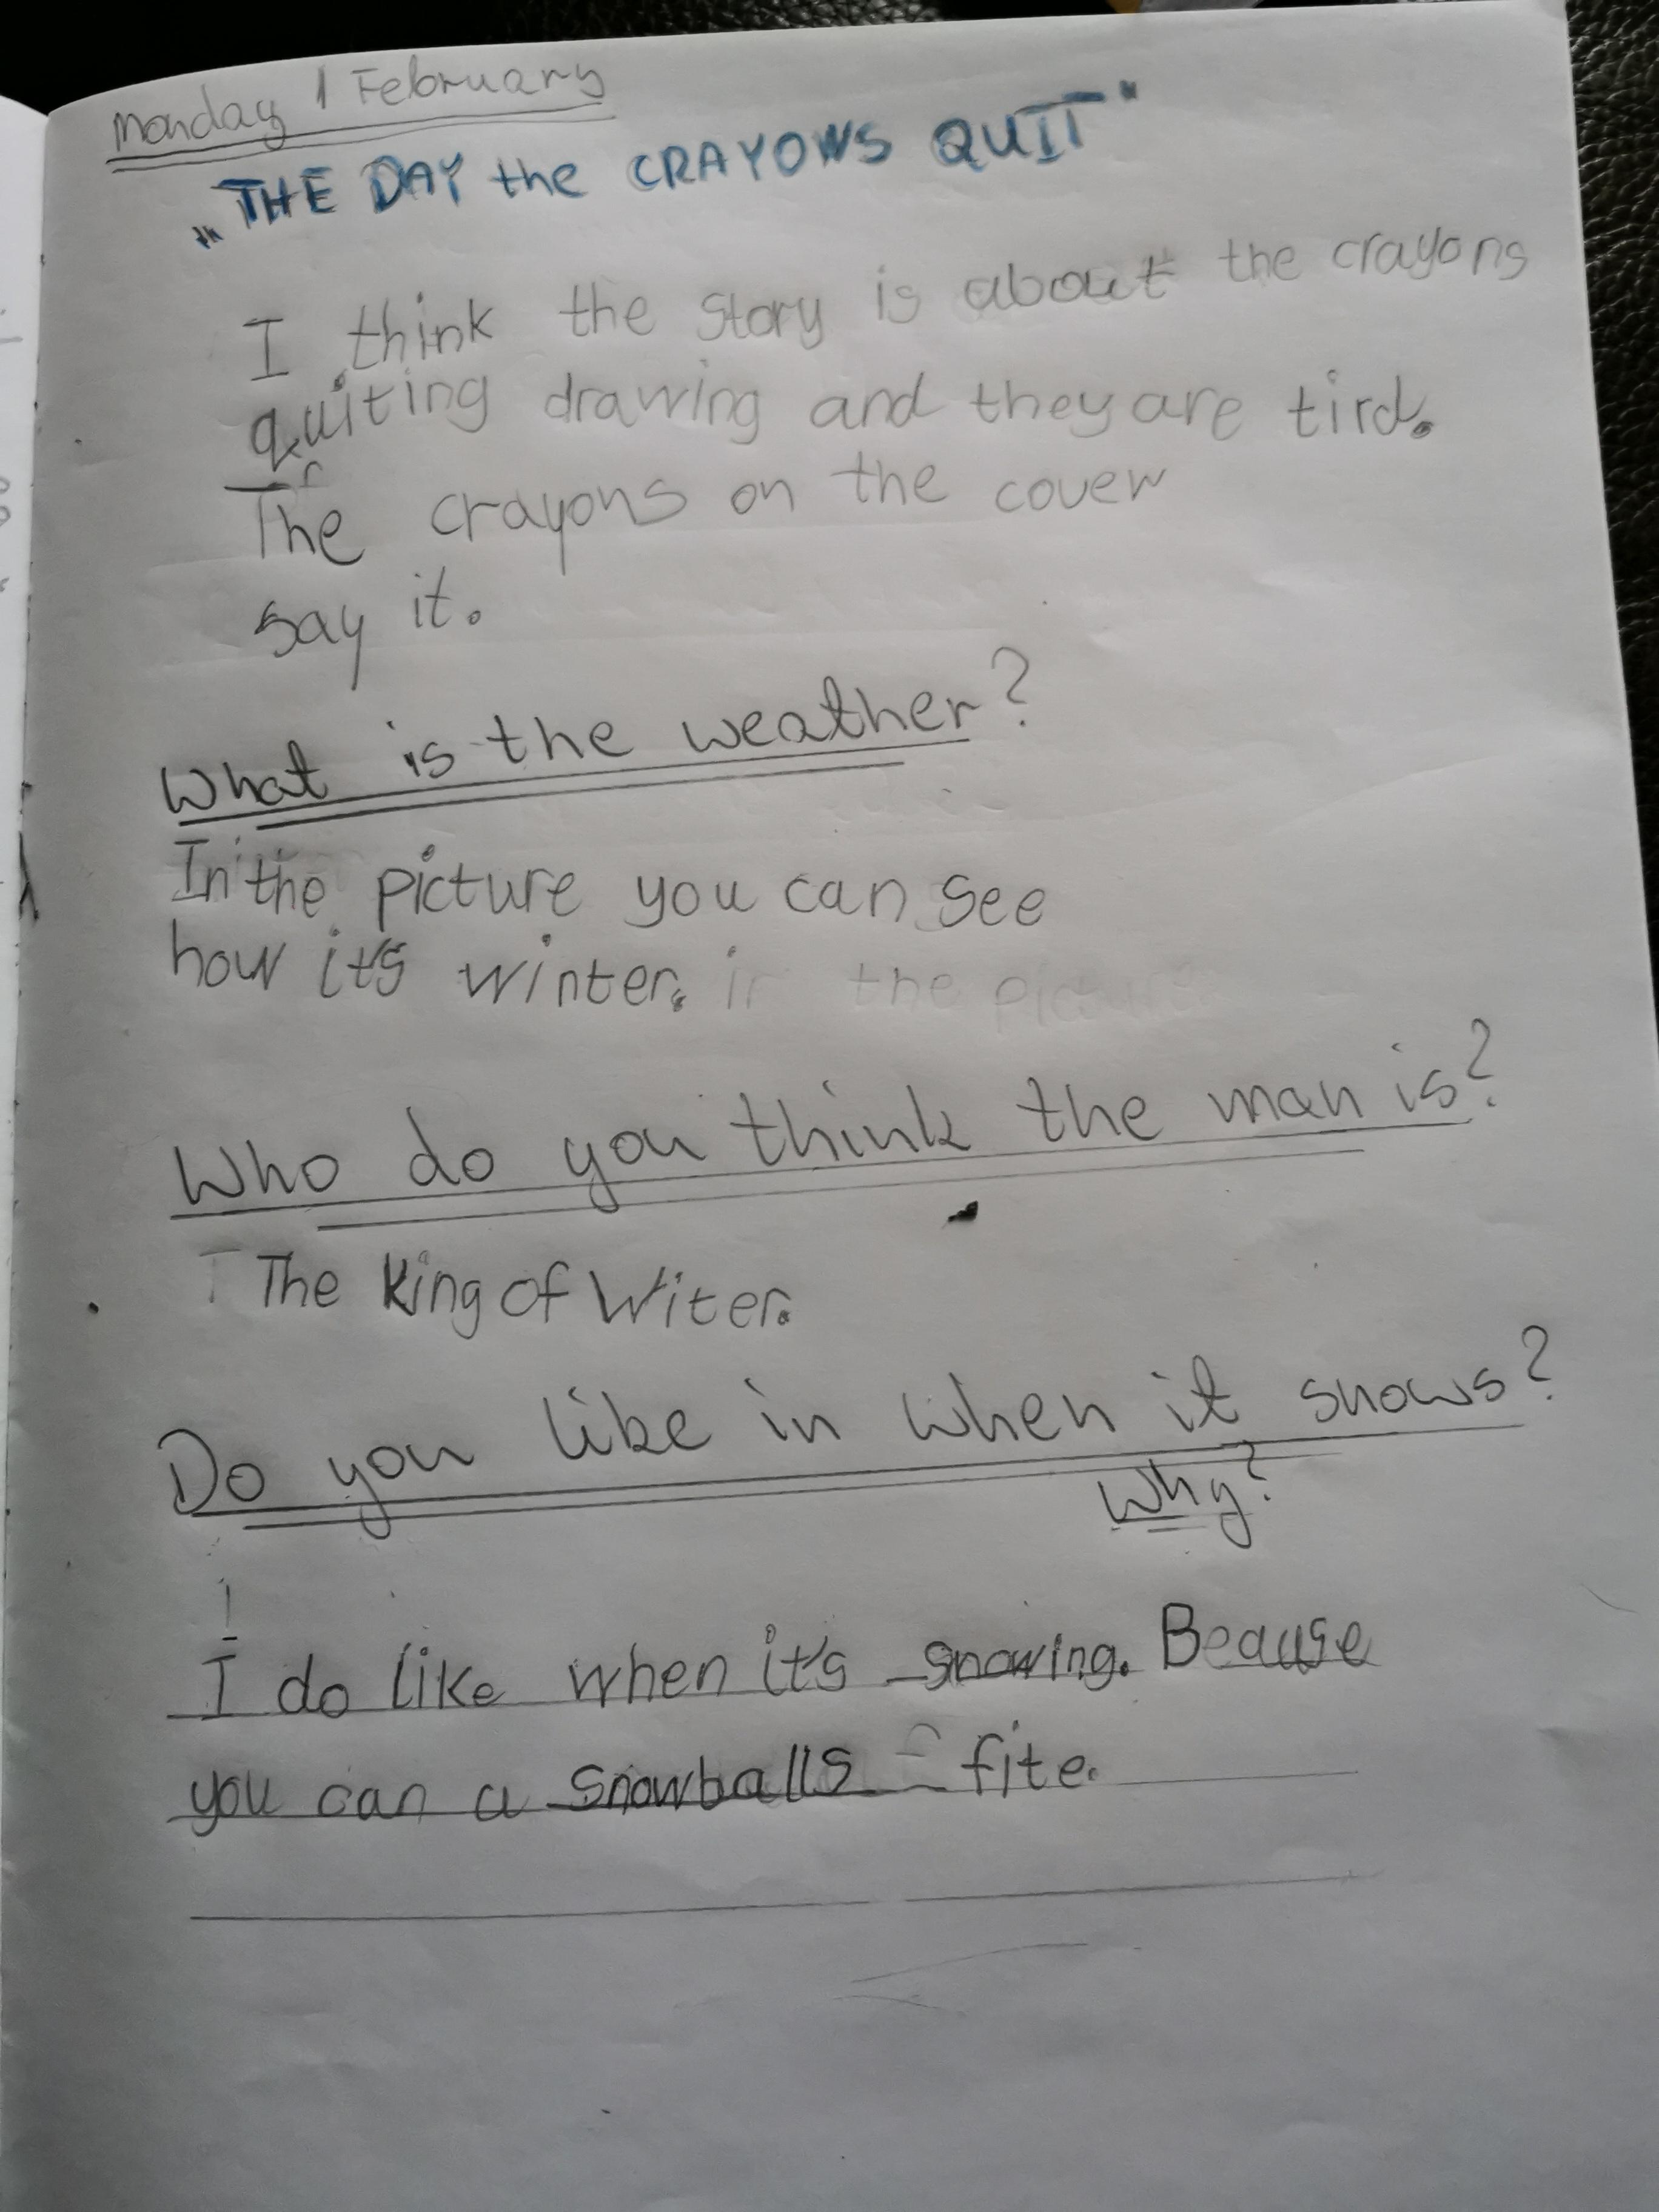 Monday 1 February
„THE DAY the CRAYONS QUIT"
I think the story is about the crayons
quiting drawing and they are tird.
The crayons on the cover
say it.
What is the weather?
In the picture you can see
how it's winter. in the picture
Who do you think the man is?
The King of Witer.
Do you like in when it snows?
Why?
I do like when it's snowing. Beause
you can a snowballs fite.